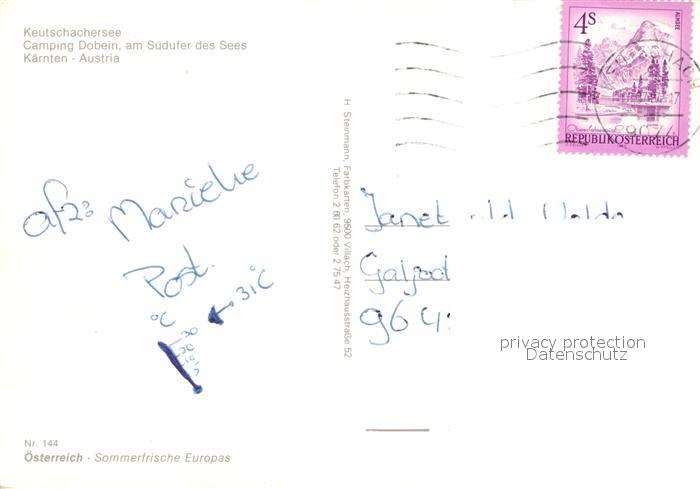 Keutschachersee
Camping Dobein, am Südufer des Sees
Kärnten - Austria
4S
ALMSEE
REPUBLIK ÖSTERREICH
H. Steinmann, Farbkarten, 9500 Villach, Heizhausstraße 52
Telefon 2 60 62 oder 2 75 47
afz: Marieke
Post.
°C
31°C
30
20
10
Janet
964
privacy protection
Datenschutz
Nr. 144
Österreich - Sommerfrische Europas